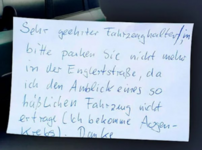 Sehr geehrter Fahrzeughalter/in,
bitte parken Sie nicht mehr
in der Englertstraße, da
ich den Anblick eines so
häßlichen Fahrzeug nicht
ertrage (Ich bekomme Augen-
krebs). Danke